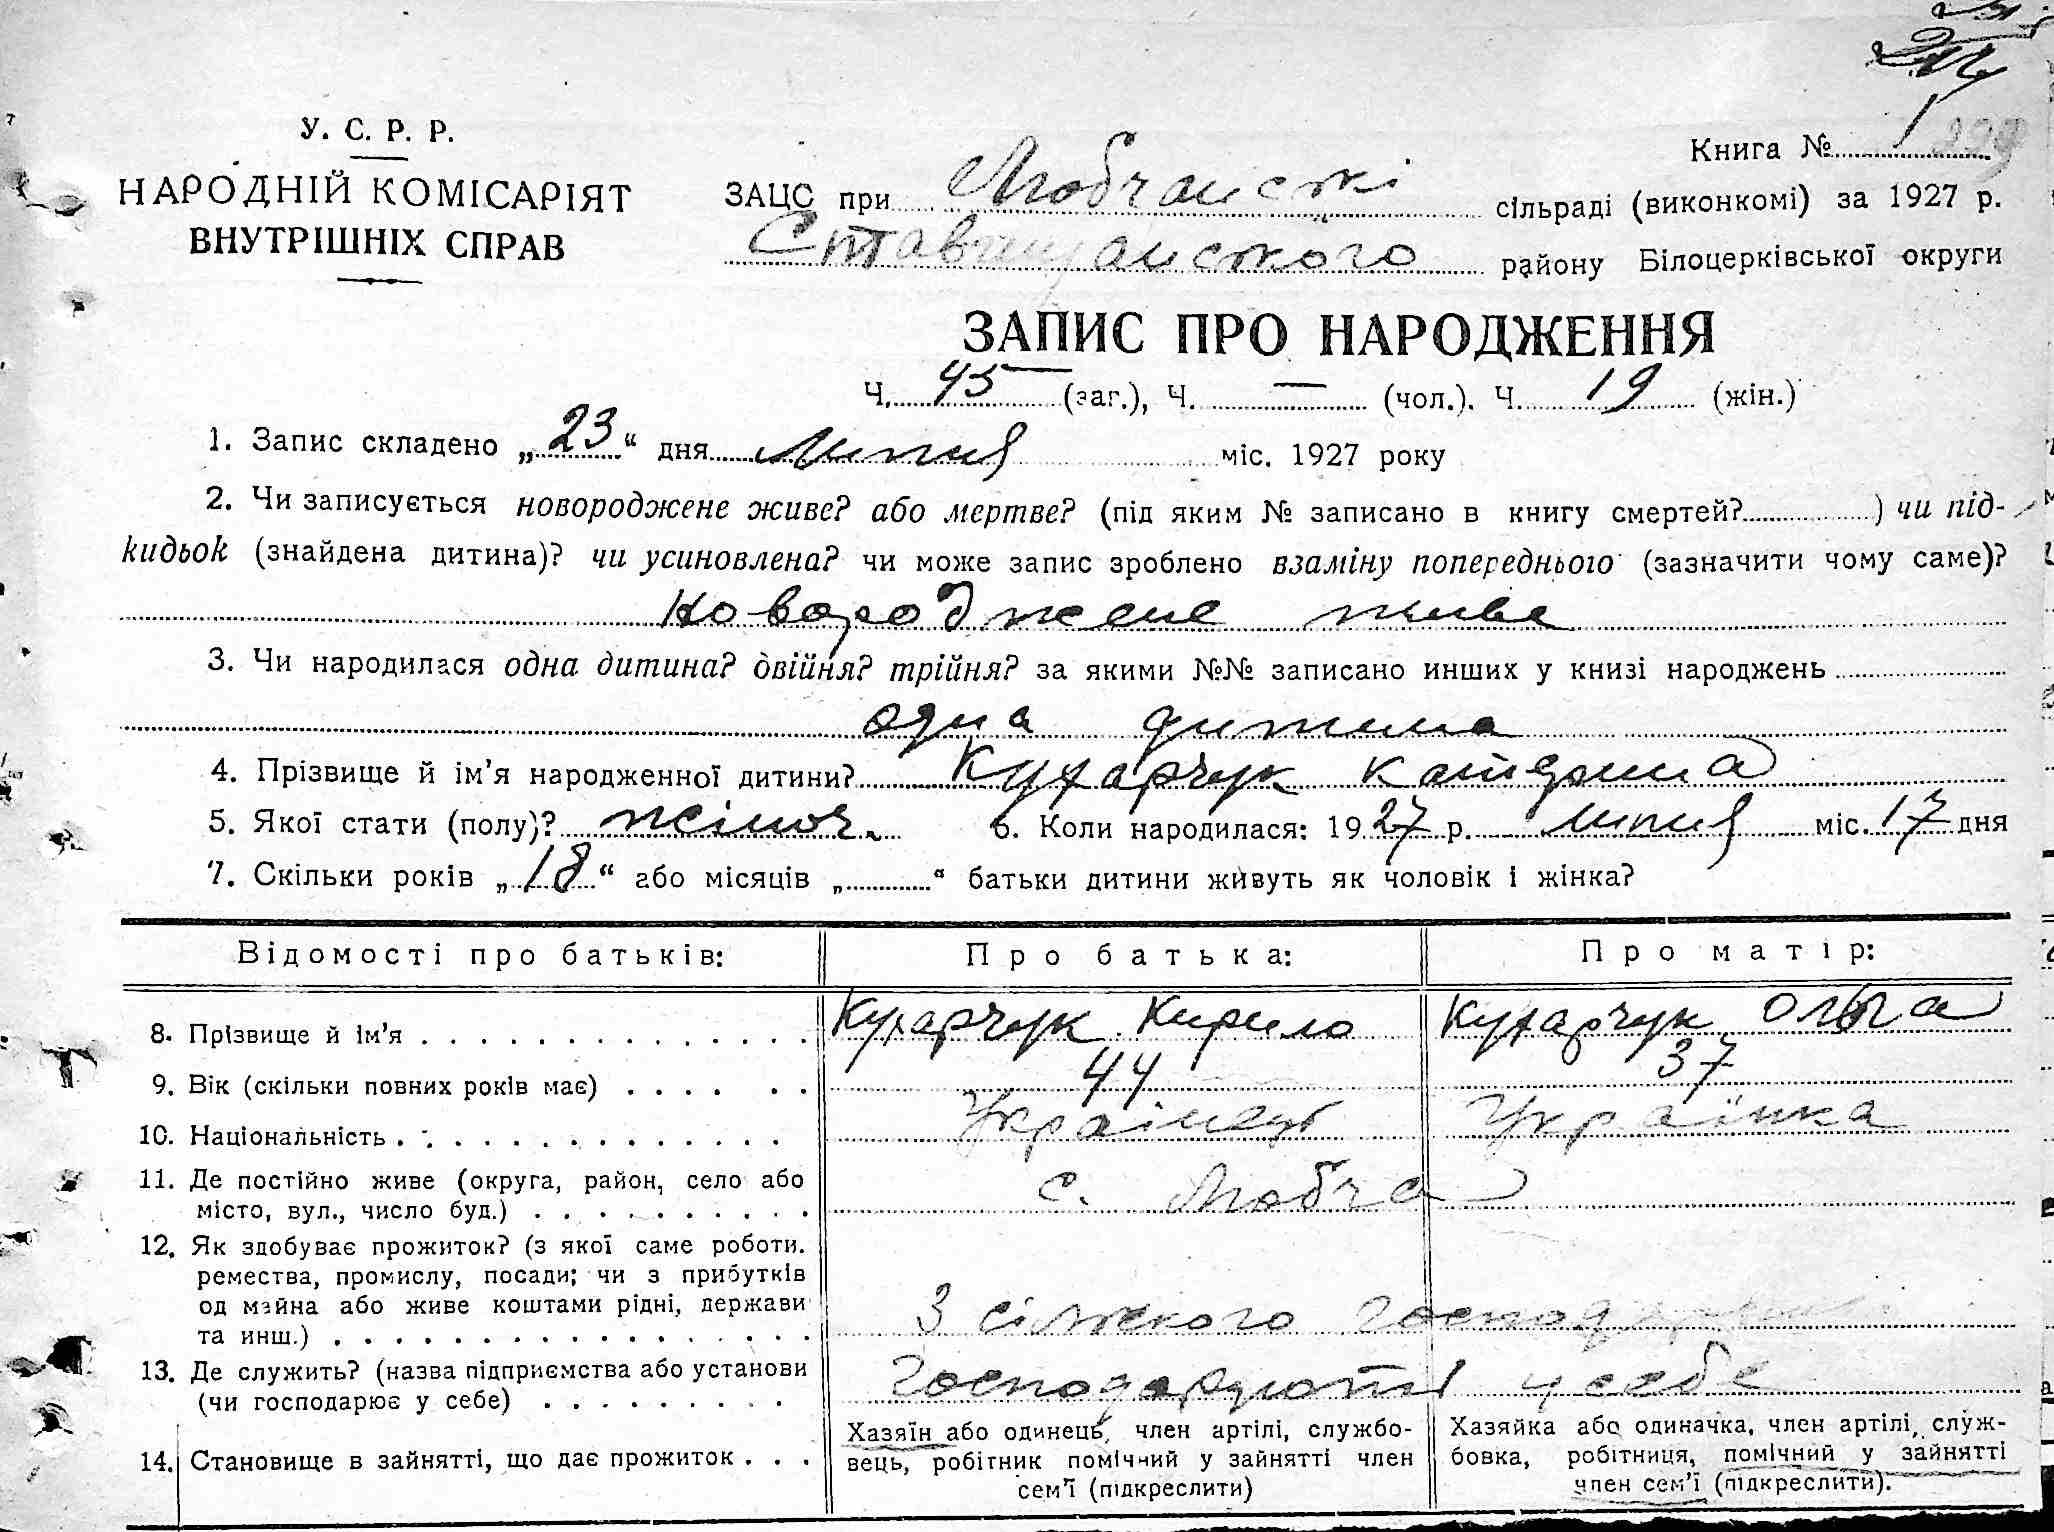 У. С. Р. Р.
НАРОДНІЙ КОМІСАРІЯТ
ВНУТРІШНІХ СПРАВ
Книга № 1 299
ЗАЦС при Любчанські сільраді (виконкомі) за 1927 р.
Ставищанського району Білоцерківської округи
ЗАПИС ПРО НАРОДЖЕННЯ
Ч. 45 (заг.), Ч. — (чол.). Ч. 19 (жін.)
1. Запис складено „23“ дня липня міс. 1927 року
2. Чи записується новороджене живе? або мертве? (під яким № записано в книгу смертей? ) чи під-
кидьок (знайдена дитина)? чи усиновлена? чи може запис зроблено взаміну попереднього (зазначити чому саме)?
новороджене живе
3. Чи народилася одна дитина? двійня? трійня? за якими №№ записано инших у книзі народжень
одна дитина
4. Прізвище й ім’я народженної дитини? Кухарчук Катерина
5. Якої стати (полу)? жіноч. 6. Коли народилася: 1927 р. липня міс. 17 дня
7. Скільки років „18“ або місяців „ “ батьки дитини живуть як чоловік і жінка?
Відомості про батьків: Про батька: Про матір:
8. Прізвище й ім’я Кухарчук Кирило Кухарчук Ольга
9. Вік (скільки повних років має) 44 37
10. Національність Українець Українка
11. Де постійно живе (округа, район, село або
місто, вул., число буд.) с. Любча
12. Як здобуває прожиток? (з якої саме роботи.
ремества, промислу, посади; чи з прибутків
од майна або живе коштами рідні, держави
та инш.) З сільського
13. Де служить? (назва підприємства або установи
(чи господарює у себе) Господарюють у себе
14. Становище в зайнятті, що дає прожиток
Хазяїн або одинець, член артілі, службо-
вець, робітник помічний у зайнятті член
сем’ї (підкреслити)
Хазяйка або одиначка, член артілі, служ-
бовка, робітниця, помічний у зайнятті
член сем’ї (підкреслити).